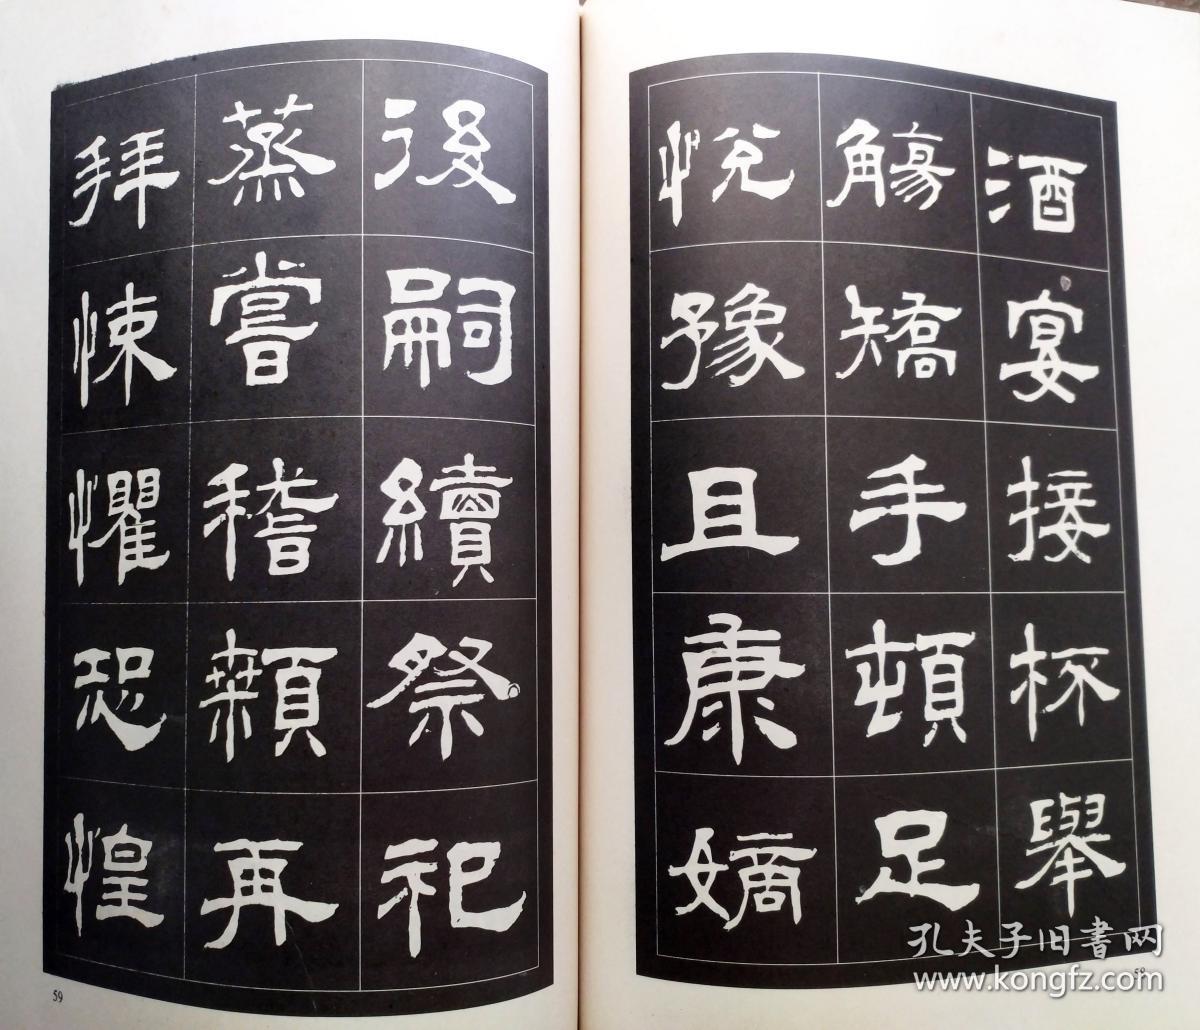 酒宴接杯舉
觴矯手頓足
悅豫且康嫡
後嗣續祭祀
蒸嘗稽顙再
拜悚懼恐惶
59
孔夫子旧書网
www.kongfz.com